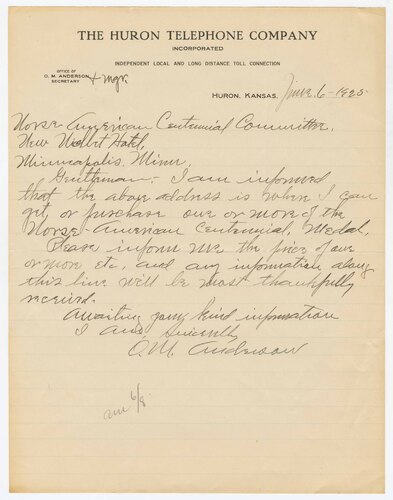 THE HURON TELEPHONE COMPANY
INCORPORATED
INDEPENDENT LOCAL AND LONG DISTANCE TOLL CONNECTION
OFFICE OF
O. M. ANDERSON
SECRETARY + mgr.
HURON, KANSAS, June 6-1925
Norse American Centennial Committee,
New Nicolet Hotel,
Minneapolis, Minn,
Gentleman:- I am informed
that the above address is where I can
get or purchase one or more of the
Norse-American Centennial, Medal.
Please inform me the price of one
or more etc, and any information along
this line will be most thankfully
received.
Awaiting your kind information
I am sincerely
O. M. Anderson
am 6/8